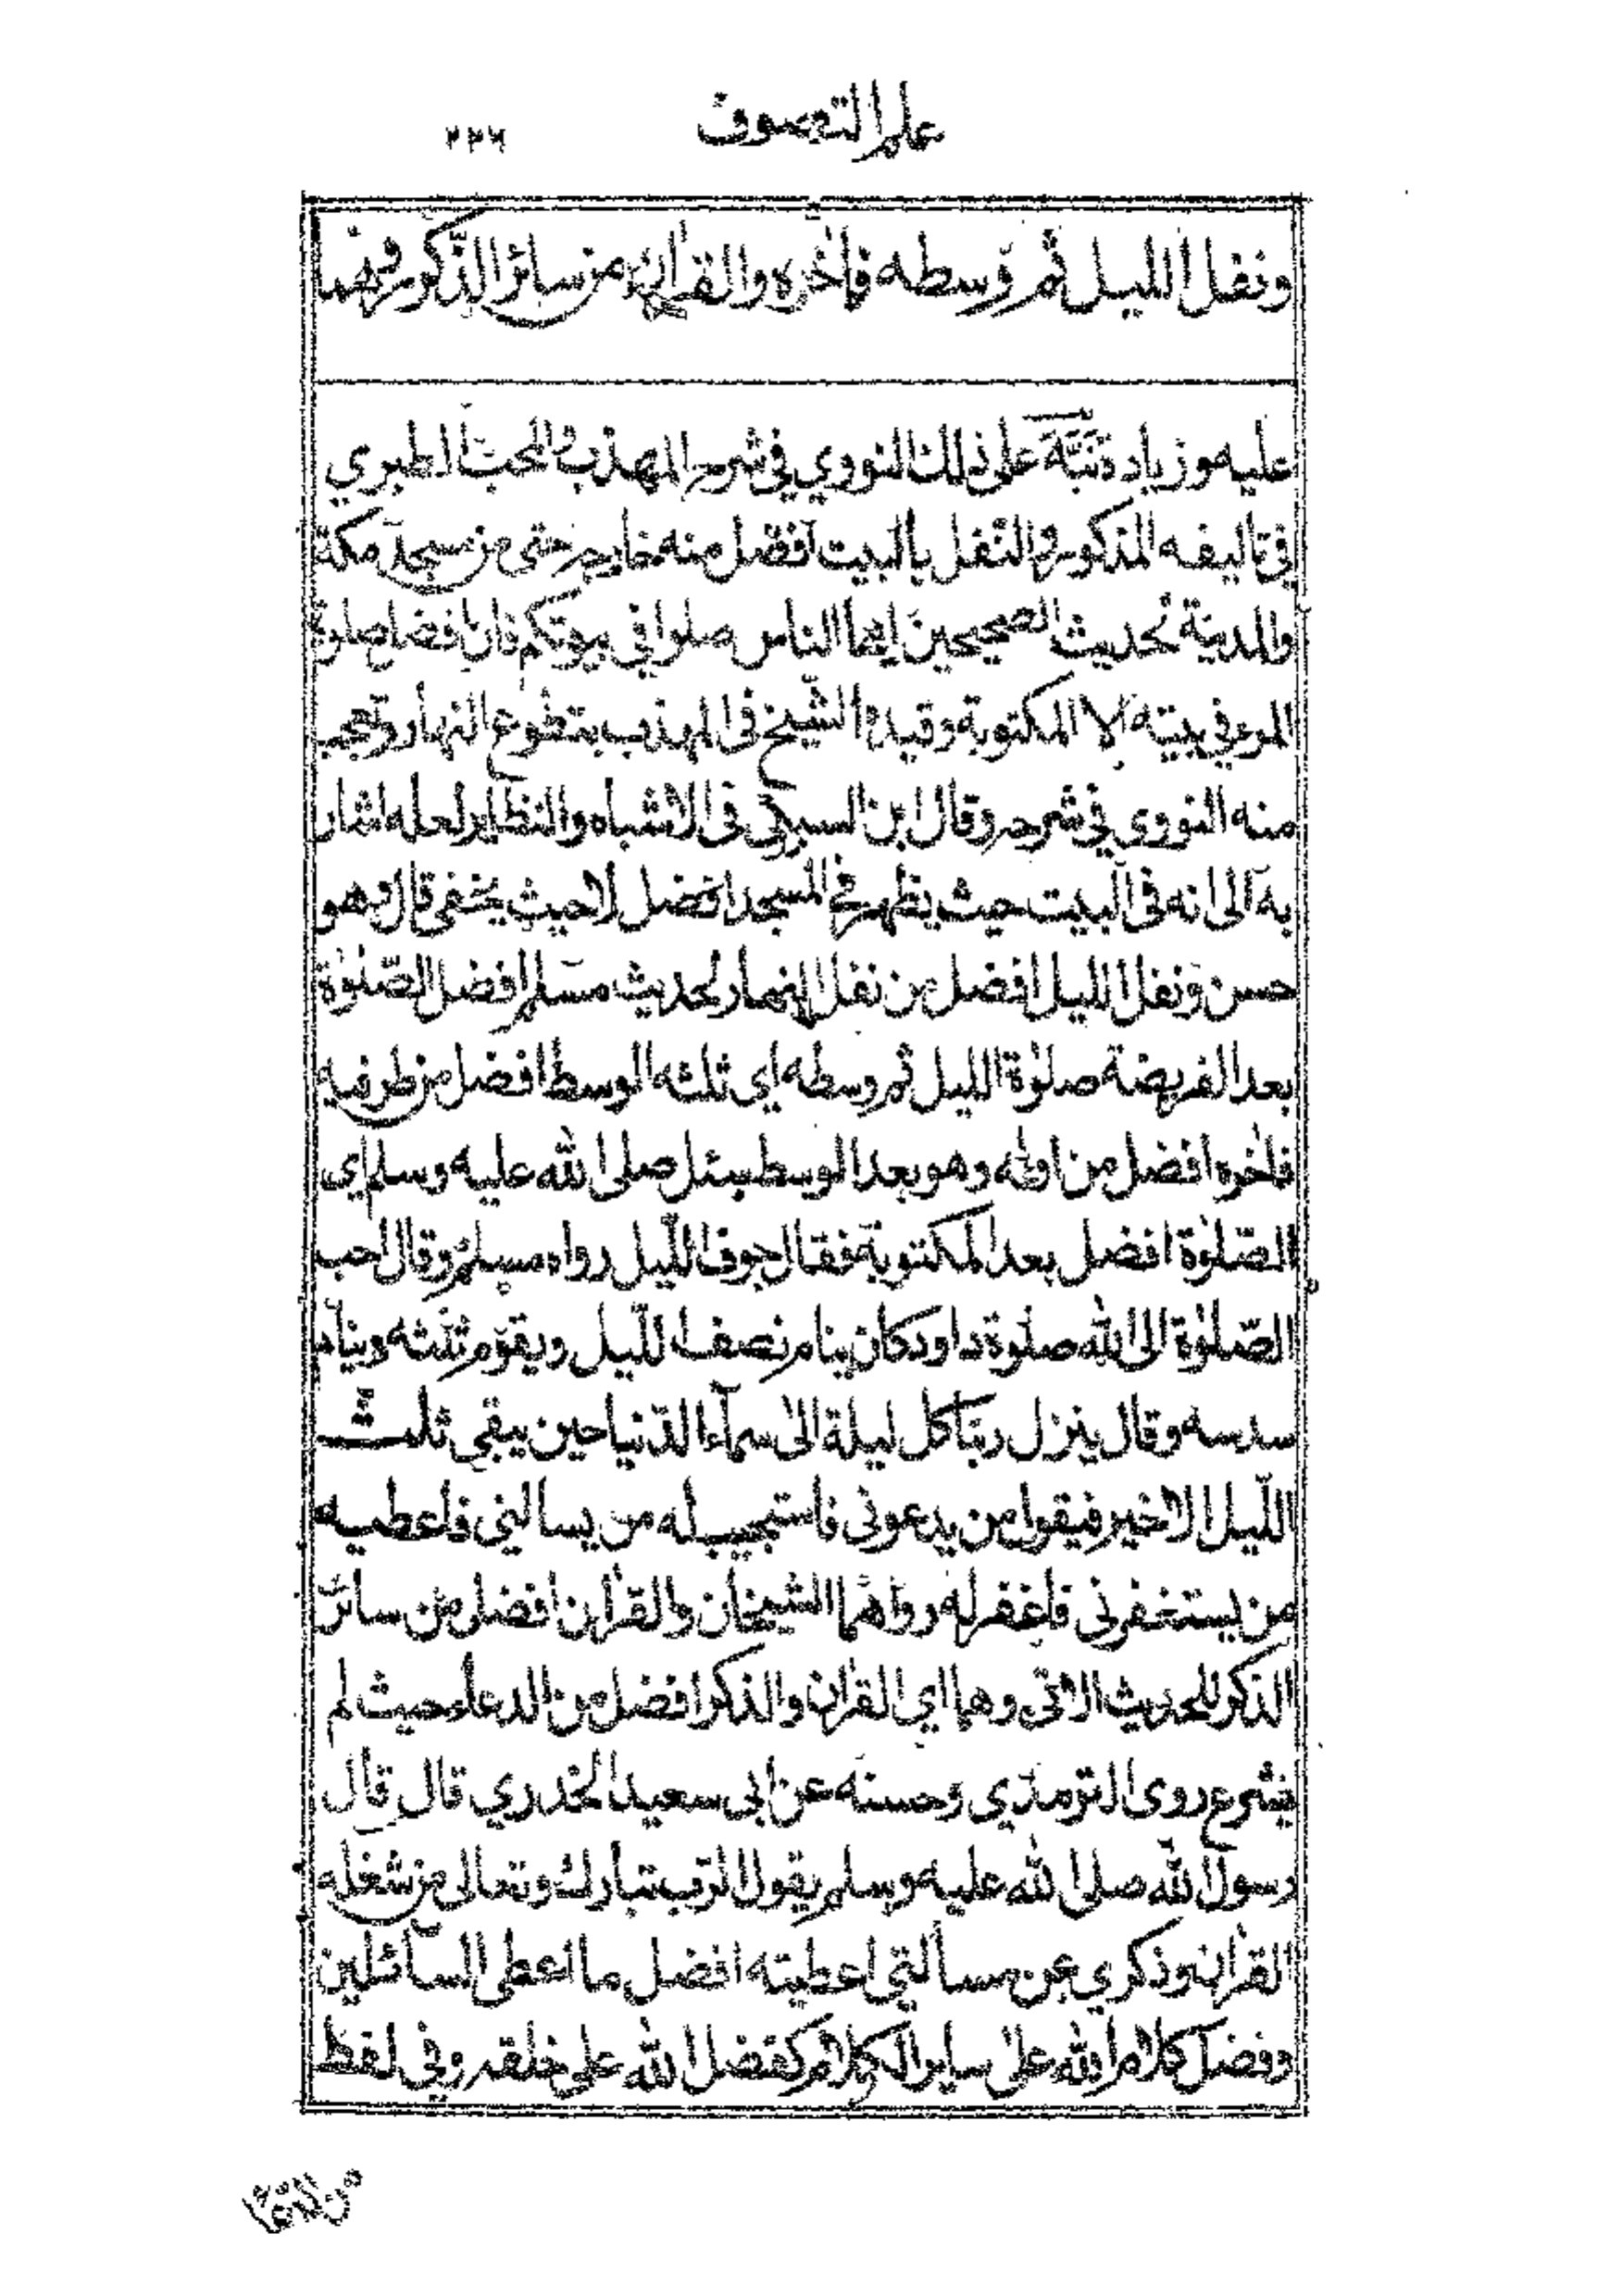 علم التصوف
٢٢٦
ونفل الليل ثم وسطه فاخره والقرآن من سائر الذكر وهما
عليه وزيادة نبه على ذلك النووي في شرح المهذب والمحب الطبري
في تاليفه المذكور والنفل بالبيت افضل منه خارجه حتى من مسجد مكة
والمدينة لحديث الصحيحين ايها الناس صلوا في بيوتكم فان افضل صلوة
المرء في بيته الا المكتوبة وقيده الشيخ فى المهذب بتطوع النهار وتعجب
منه النووي في شرحه وقال ابن السبكي فى الاشباه والنظاير لعله اشار
به الى انه فى البيت حيث يظهر في المسجد افضل لا حيث يخفى قال وهو
حسن ونفل الليل افضل من نفل النهار لحديث مسلم افضل الصلوة
بعد الفريضة صلوة الليل ثم وسطه اي ثلثه الوسط افضل من طرفيه
فاخره افضل من اوله وهو بعد الوسط سئل صلى الله عليه وسلم اي
الصلوة افضل بعد المكتوبة فقال جوف الليل رواه مسلم وقال احب
الصلوة الى الله صلوة داود كان ينام نصف الليل ويقوم ثلثه وينام
سدسه وقال ينزل ربنا كل ليلة الى سمآء الدنيا حين يبقى ثلث
الليل الاخير فيقول من يدعونى فاستجيب له من يسالني فاعطيه
من يستغفرنى فاغفر له رواهما الشيخان والقرآن افضل من سائر
الذكر للحديث الاتى وهما اي القرآن والذكر افضل من الدعاء حيث لم
يشرع روى الترمذي وحسنه عن ابى سعيد الخدري قال قال
رسول الله صلى الله عليه وسلم يقول الرب تبارك وتعالى من شغله
القرآن وذكري عن مسألتي اعطيته افضل ما اعطى السآئلين
وفضل كلام الله على ساير الكلام كفضل الله على خلقه وفي لفظ
من الدعا